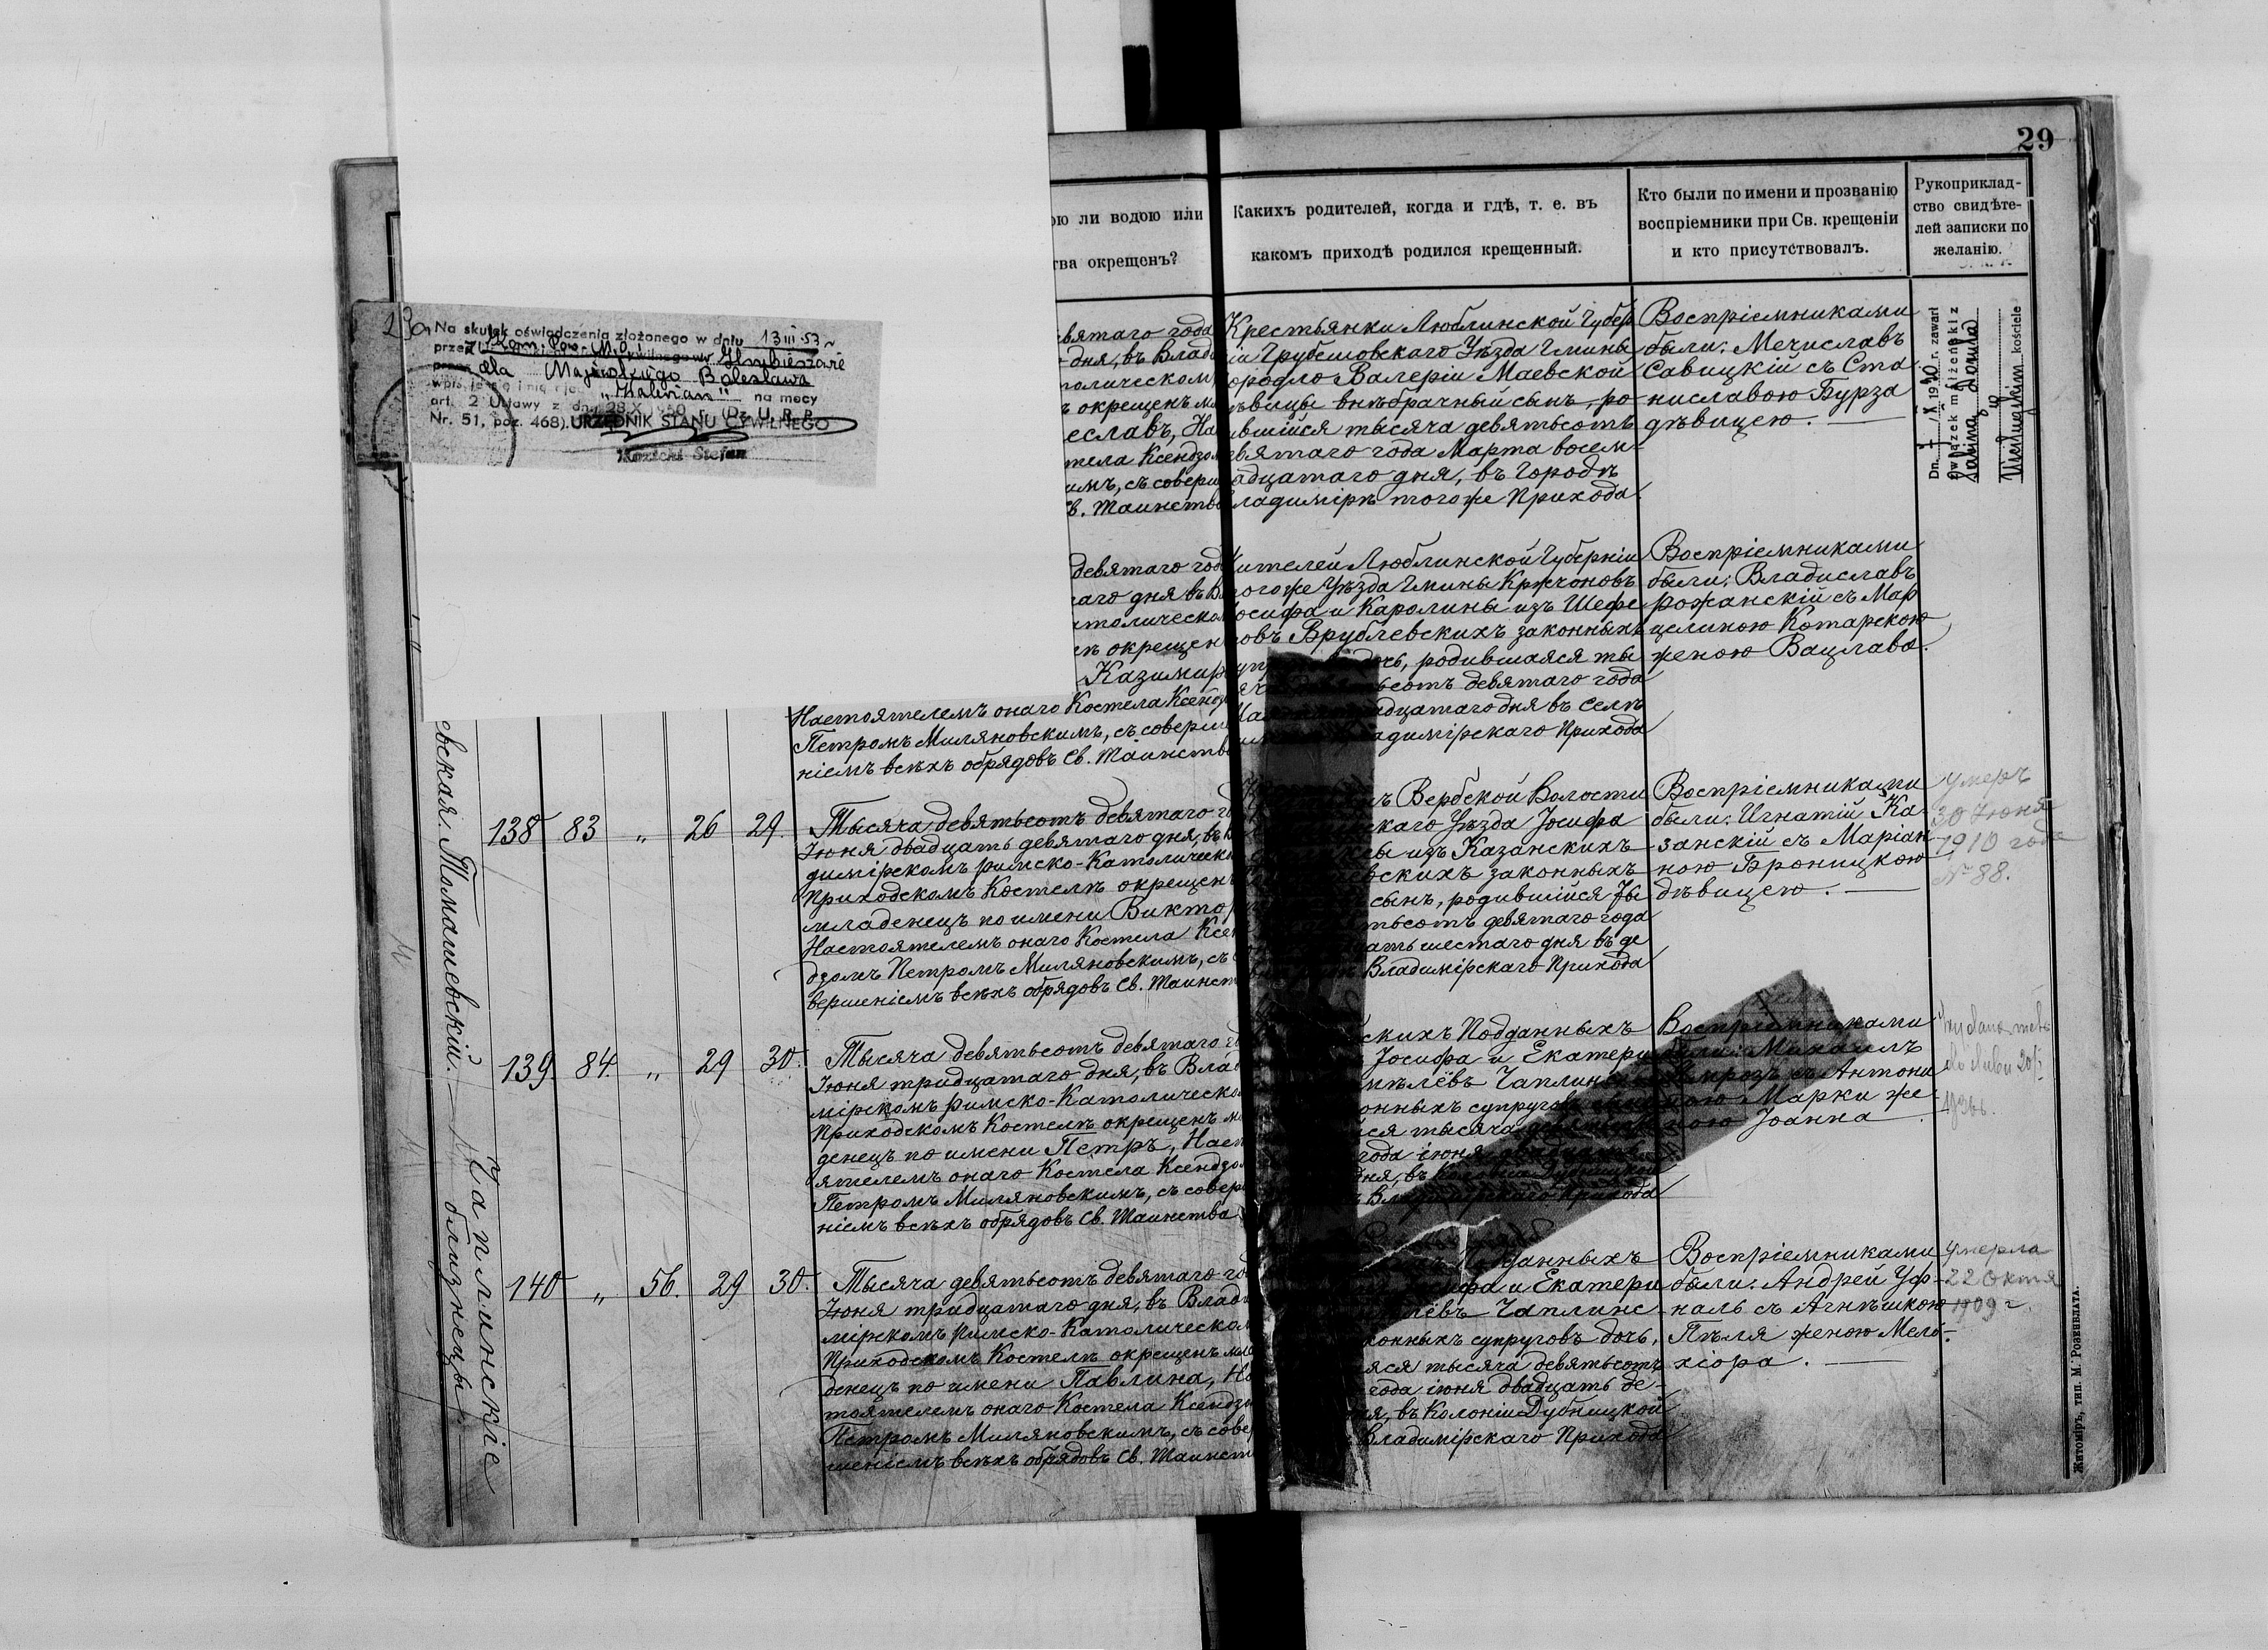 29
ою ли водою или
тва окрещенъ?
Каихъ родителей, когда и гдѣ, т. е. въ
какомъ приходѣ родился крещенный.
Кто были по имени и прозванію
воспріемники при Св. крещеніи
и кто присутствовалъ.
Рукоприклад-
ство свидѣте-
лей записки по
желанію.
Na skutek oświadczenia złożonego w dniu 13 III 53
przez Kom. Pow. M.O. Hrubieszowie
dla Majewskiego Bolesława
"Walerian" na mocy
art. 2 Ustawy z dn. 28.X.1950 r. (Dz. U. R. P.
Nr. 51, poz. 468). URZĘDNIK STANU CYWILNEGO
Kozicki Stefan
вятаго года
дня, въ Влади
толическом
ъ окрещенъ м
еславъ, На
тела Ксендзом
имъ, съ соверш
в. Таинства
Крестьянки Люблинской Губер
ніи Грубешовскаго Уѣзда Гмины
ородло Валеріи Маевской
ѣвицы внѣбрачный сынъ, ро
ившійся тысяча девятьсотъ
евятаго года Марта восем-
адцатаго дня, въ Городѣ
ладимірѣ тогоже Прихода.
Воспріемниками
были: Мечиславъ
Савицкій съ Ста
ниславою Бурза
дѣвицею.
Dn. / X 1930 r. zawarł
związek małżeński z
kościele
девятаго год
аго дня въ В
толическо
ѣ окрещен
Казимир
Настоятелемъ онаго Костела Ксендз
Петромъ Миляновскимъ, съ соверше
ніемъ всѣхъ обрядовъ Св. Таинства
ителей Люблинской Губерніи
огоже Уѣзда Гмины Кржчоновъ
осифа и Каролины изъ Шефе
ровъ Врублевскихъ законныхъ
дочь, родившаяся ты
ьсотъ девятаго года
адцатаго дня въ селѣ
адимірскаго Прихода
Воспріемниками
были: Владиславъ
Рожанскій съ Мар
целиною Котарскою
женою Вацлава.
евская. Томашевскій.
138 83 „ 26 29.
Тысяча девятьсотъ девятаго г
Іюня двадцать девятаго дня, въ В
димірскомъ римско-Католическо
Приходскомъ Костелѣ окрещенъ
младенецъ по имени Викто
Настоятелемъ онаго Костела Ксен
дзомъ Петромъ Миляновскимъ, съ
вершеніемъ всѣхъ обрядовъ Св. Таинст
ъ Вербской Волости
скаго Уѣзда Іосифа
ы изъ Казанскихъ
евскихъ законныхъ
сынъ, родившійся ты
тьсотъ девятаго года
ать шестаго дня въ де
Владимірскаго Прихода
Воспріемниками
были: Игнатій Ка
занскій съ Маріан
ною Броницкою
дѣвицею.
Умеръ
30 Іюня
1910 года
№ 88.
Чаплинскіе
близнецы
139. 84. „ 29 30.
Тысяча девятьсотъ девятаго г
Іюня тридцатаго дня, въ Влад
мірскомъ римско-Католическо
Приходскомъ Костелѣ окрещенъ м
денецъ по имени Петръ, Наст
ятелемъ онаго Костела Ксендзо
Петромъ Миляновскимъ, съ совер
ніемъ всѣхъ обрядовъ Св. Таинства
скихъ Подданныхъ
Іосифа и Екатери
Чаплинс
онныхъ супруговъ
ся тысяча
года іюня
дня, въ
Прихода
Воспріемниками
были: Михаилъ
съ Антони
ною Марки же
ною Іоанна
140 „ 56. 29 30.
Тысяча девятьсотъ девятаго го
Іюня тридцатаго дня, въ Влад
мірскомъ римско-Католическом
Приходскомъ Костелѣ окрещенъ мла
денецъ по имени Павлина, На
тоятелемъ онаго Костела Ксендзо
Петромъ Миляновскимъ, съ сове
шеніемъ всѣхъ обрядовъ Св. Таинст
данныхъ
фа и Екатери
лёвъ Чаплинс
конныхъ супруговъ дочь,
яся тысяча девятьсотъ
года іюня двадцать де-
я, въ Колоніи Дубницкой
Владимірскаго Прихода
Воспріемниками
были: Андрей Уф-
наль съ Агнѣшкою
Пѣля женою Мель-
хіора.
Умерла
22 Октя
1909 г.
Житоміръ, тип. М. Розенблата.